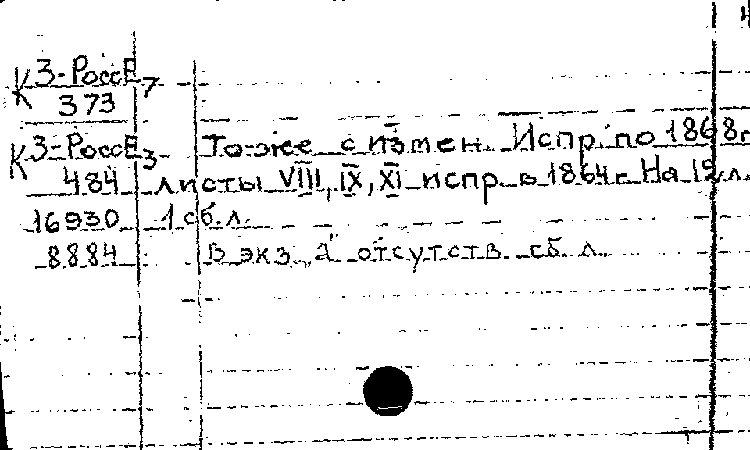 К 3-РоссЕ 7
373
К 3-РоссЕ 3 То же с измен. Испр. по 1868г
484 листы VIII, IX, XI испр. в 1864г. На 12 л.
16930 1 сб. л.
8884 В экз. „а" отсутств. сб. л.